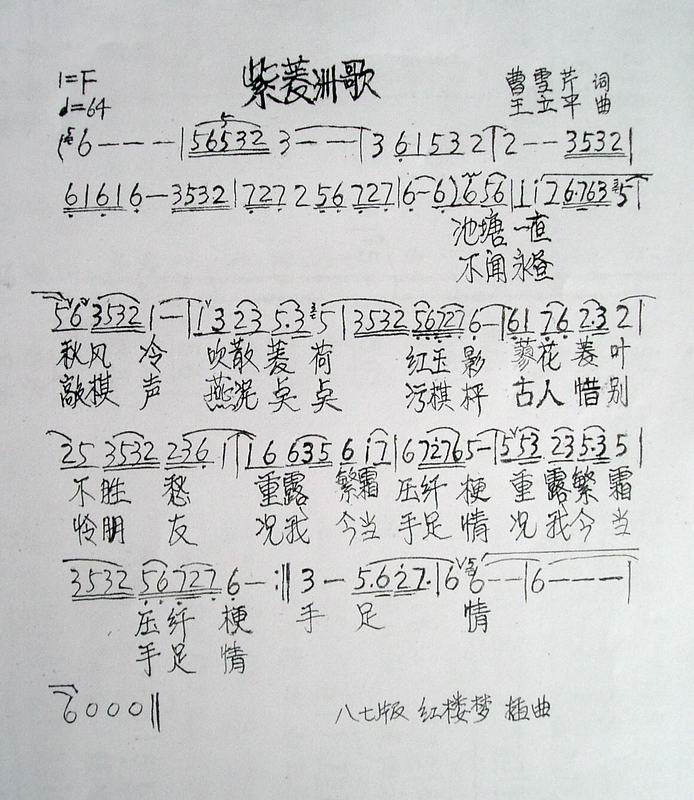 紫菱洲歌
1=F
♩=64
曹雪芹 词
王立平 曲
6 - - - | 56532 3 - - | 3 61532 | 2 - - 3532 |
61616 - 3532 | 727 2 56 727 | 6 - 6) 6 56 | 1 1 2 6·763 5 |
池塘 一夜
不闻永昼
56 3532 1 - | 1 3 23 5·3 5 | 3532 56727 6 - | 61 76 2·3 2 |
秋风 冷 吹散菱荷 红玉影 蓼花菱叶
敲棋 声 燕泥点点 污棋枰 古人惜别
25 3532 236 1 | 1 6 6335 6 i7 | 6 72765 - | 553 235·3 5 |
不胜 愁 重露 繁霜 压纤 梗 重露繁 霜
怜朋 友 况我 今当 手足 情 况我今 当
3532 56727 6 - :‖ 3 - 5·627· | 6 6 - - | 6 - - - |
压纤 梗 手 足 情
手足 情
6 0 0 0 ‖
八七版 红楼梦 插曲